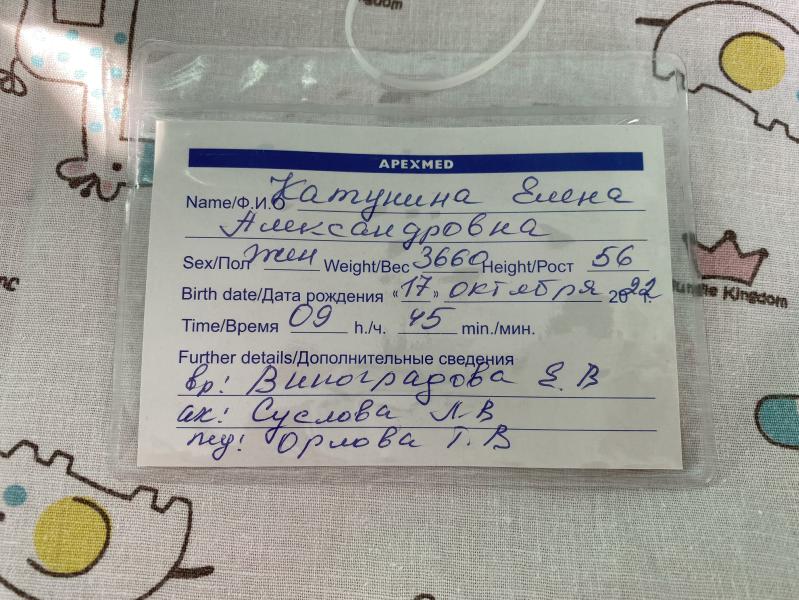 APEXMED
Name/Ф.И.О Катунина Елена
Александровна
Sex/Пол жен Weight/Вес 3660 Height/Рост 56
Birth date/Дата рождения «17» октября 2022 г.
Time/Время 09 h./ч. 45 min./мин.
Further details/Дополнительные сведения
вр: Виноградова Е.В
ак: Суслова Л.В
пед: Орлова Т.В
Kingdom